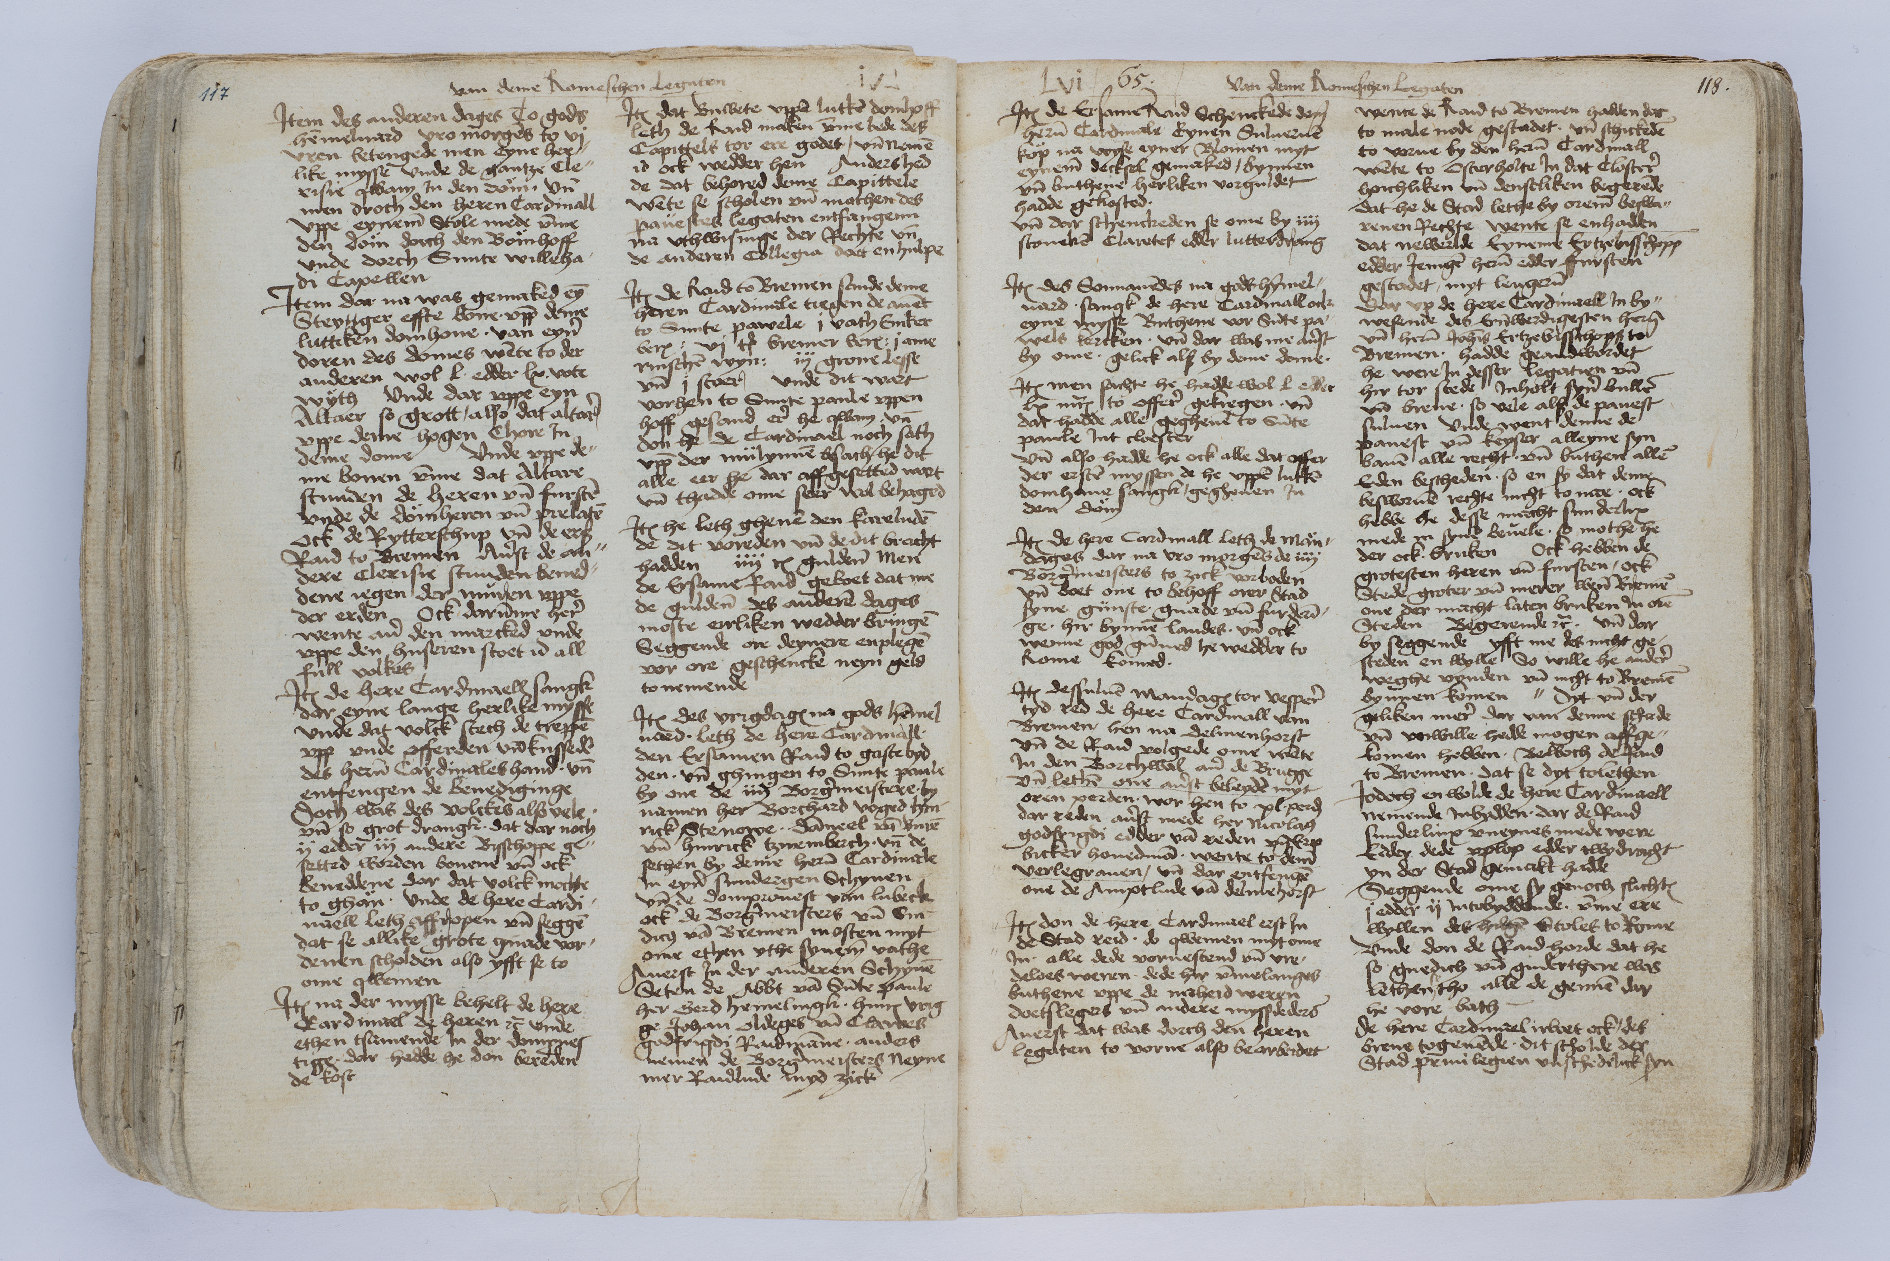 117
van deme Romeschen Legaten
Item des anderen dages To gods
hēmelnard vro morgēs to vj
vren betengede men eyne her-
like mysse vnde de gantze Cle-
risie qwam In den dōm vn̄
men droch den heren Cardinall
vppe eynem Stole mede vm̄e
den dom dorch den Bomhoff
vnde dorch Sunte willeha-
di Capellen
Item dar na was gemaked eȳ
Steyttger effte Bone vpp̄ deme
lutticken domhoue. van eyn̄
doren des domes wēte to der
anderen wol l. edder lx vote
wyth Vnde dar vppe eyn
Altaer so grott / also dat altar
vppe deme hogen Chore In
deme dome Vnde vppe de-
me bonen vm̄e dat Altare
stunden de heren vn̄ furstē
vnde de domheren vn̄ prelatē
ock de Rytterschup vn̄ de ers
Raid to Bremen Auerst de an-
dere Clerisie stunden bened-
dene iegen der muren vppe
der erden Ock darum̄e her
wente an den marcked vnde
vppe den huseren stoet id all
full volkes
Itē de here Cardinaell sangk
dar eyne lange herlike mysse
Vnde dat volck stech de treppē
vpp vnde offerden vn̄ kusseden
des hern̄ Cardinales hand. vn̄
entfengen de benediginge
Doch was des volckes also vele.
vn̄ so grot drangk. dat dar noch
ij edder iij andere Bisschoppe ge-
setted worden bouene vn̄ ock
beneddene dar dat volck mochte
to ghan. Vnde de here Cardi-
naell leth affropen vn̄ seggē
dat se allike grote gnade vor-
denen scholden also yfft se to
ome qwemen
Itē na der mysse behelt de here
Kardinael de heren rc̄ vnde
ethen tsamende In der dompraues
tige. dar hadde he don bereden
de kost
Itē dat buwete vppe luttē domhoff
leth de Raid maken vm̄e bede des
Capittels tor ere godes / vn̄ nemē
id ock wedder hen Anders hed
de dat behored deme Capittele
wēte se scholen vn̄ mothen des
pauestes legaten entfangenn
na vthwisinge der Rechte vn̄
de anderen Collegia dar en hulpe
Itē de Raid to Bremen sande deme
heren Cardinale tiegen de auent
to Sunte pawele j vath Emker
berß: vj tß bremer berß: j ame
rinschē wyn: iij grone lesse
vn̄ j stoer Vnde dit wart
vorhen to Sunte paule vppen
hoff gesand er he qwam vn̄
don he de Cardinael noch sath
vpp̄ der mulynnē bsach he dit
alle eer he dar aff gesettnn wart
vn̄ thadde ome seer wol behaged
Itē he leth gheuē den kareludē
de dit voreden vn̄ de dit bracht
hadden iiij rß guldenn Men
de Ersame Raid geboet dat me
de guldenn des anderē dages
moste erliken wedder bringē
Seggende ore deynere enplegē
vor ore geschencke neyn geld
to nemende
Itē des vrigdagß na gods hēmel
nard. leth de here Cardinall.
den Ersamen Raid to gaste byd
den. vn̄ ghingen to Sunte paule
by one de iiij Borgermeistere by
namen her Borchard voged hin-
rick Stenowe. Daneel vā Buren
vn̄ hinrick tzirenberch. vn̄ de
sethen by deme hern̄ Cardinale
In eyn̄ sundergen Schynen
vn̄ de dompronest van lubeck
ock de Borgermeisters vn̄ Sin-
dicus vā Bremen mosten myt
ome ethen vthe synem̄ vathe
Auerst In der anderen Schyuē
Seten de Abbt vā Sūte paule
her Gerd hemelingk. hinr vrig
ge Johan oldeges vn̄ Clawes
godfrigdi Raidmāne. anders
nemen de Borgermeisters neyne
mer Raidlude myd zick
Lvi 65.
Van deme Romeschen Legaten
118.
Itē de Ersame Raid Schenckede dem
hern̄ Cardinale Eynen Suluernē
kop na wyse eyner Blomen myt
eynem̄ decksel gemaked / bynnen
vn̄ buthene herliken vorguldet
hadde gekosted.
vn̄ dar schenckeden se ome by iiij
stoueken Claretes edder lutterdrang
Itē des Sonnauēdes na gods hymel-
uard. sangk de here Cardinall ock
eyne mysse Buthene vor Sūte pa-
wels kercken. vn̄ dar was me auerst
by ome. gelick alß by deme dome.
Itē men sachte he hadde wol l edder
lx mr̄ to offer gekregen. vn̄
dat hadde alle gegheuē to Sūte
paule Int closter
Vn̄ also hadde he ock alle dat offer
der erstē myssen de he vppe luttē
domhaue sangk / gegheuen In
den dōm
Itē de here Cardinall leth de Man-
dages dar na vro morgēs de iiij
Borgermeisters to zick vorboden
vn̄ boet one to behoff orer Stad
syne gunste gnade vn̄ furderin-
ge. hir bynnē landes. vn̄ ock
wenne god gūned he wedder to
Rome komed.
Itē dessuluē Mandagß tor vesper
tyd red de here Cardinall van
Bremen hen na delmenhorst
Vn̄ de Raid volgede ome wēte
In den Borchwal an̄ de Brugge
Vn̄ lethē one auerst beleyden myt
oren perden. wor hen to xl perd
dar reden auerst mede her Nicolaus
godfrigdi edder van reden vn̄ lutke
bicker houedmā. wente to dem̄
verlegrauen / vn̄ dar entfengē
one de Amptlude vā delmehorst
Itē don de here Cardinael erst In
de Stad reid. do qwemen myt ome
In. alle dede voruestend vn̄ vre-
deloes weren. dede hir vm̄elanges
buthene vppe de manheid weren
doetslegers vn̄ andere myssdeders
Auerst dat was dorch den heren
legaten to vorne also bearbeidet
wente de Raid to Bremen hadden dat
to male node gestadet. vn̄ schickedē
to vorne by den herē Cardinall
wēte to Osterholte In dat Closter
hochliken vn̄ denstliken begerēde
dat he de Stad lethe by orem̄ beswa-
renen Rechte wente se en hadden
dat newerlde Eyneme Ertzebisschopp
edder Jenigē hern̄ edder ffursten
gestadet / myt lengern̄
Dar vp de here Cardinaell In by-
wesende des Erwerdigesten hern̄
vn̄ hern̄ Johans Ertzebisschopps to
Bremen. hadde geantwordet
he were In desser legatien vn̄
hir tor stede Inholt syner bullē
vn̄ breue. so vele alß de pauest
suluen Vnde went deme de
pauest vn̄ keyser alleyne syn
bauē alle recht vn̄ buthen allē
Eden bescheden. so en sy dat deme
besworē rechte nicht to nae. ock
hebbe he desse macht sunderlix
mede In syne beuele. so mothe he
der ock bruken Ock hebben de
grotesten heren vn̄ fursten. ock
Stede groter vn̄ merer wen̄ Bremē
one der macht laten bruken In orē
Steden Begerende rc̄. vn̄ dar
by seggende yfft me des nicht ge-
steden en wylle So wille he ander
weghe vynden vn̄ nicht to Bremē
bynnen komen Dyt vn̄ der
geliken mer dar van denne schade
vn̄ vnwille hedde mogen aff ge-
komen hebben. Bewoch de Raid
to Bremen. dat se dyt tolethen
Jodoch en wolde de here Cardinaell
nemende Inbydden. dar de Raid
sunderlinx vneynes mede were
Edder dede vplop edder twydracht
yn der Stad gemakt hadde
Seggende ome sy genoch slichtß
j edder ij Intobyddende. vm̄e ere
wyllen des hilgē Stoles to Rome
Vnde don de Raid horde dat he
so gnedich vn̄ guderthere was
lethen tho alle de gennē dar
he vore bath
De here Cardinael irboet ock / des
breue to geuende. dit scholde der
Stad priuilegien vnschedelick syn